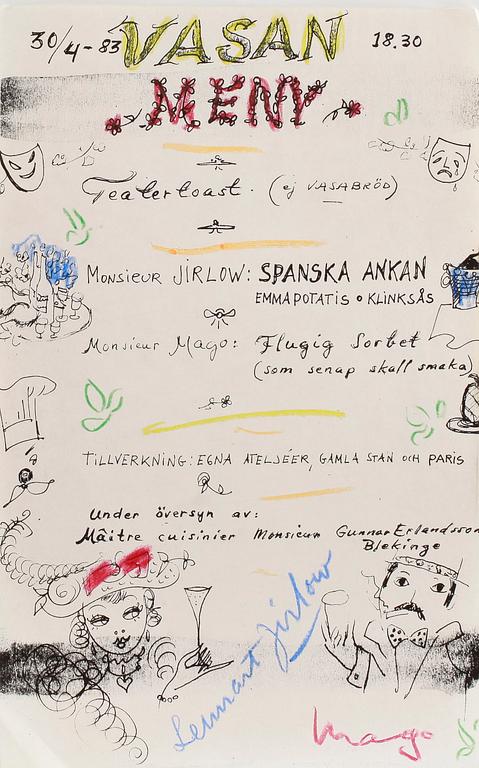 30/4-83 VASAN 18.30
MENY
Teatertoast. (ej VASABRÖD)
MONSIEUR JIRLOW: SPANSKA ANKAN
EMMAPOTATIS • KLINKSÅS
Monsieur Mago: Flugig Sorbet
(som senap skall smaka)
TILLVERKNING: EGNA ATELJÉER, GAMLA STAN och PARIS
Under översyn av:
Mâitre cuisinier Monsieur Gunnar Erlandsson
Blekinge
Lennart Jirlow
Mago